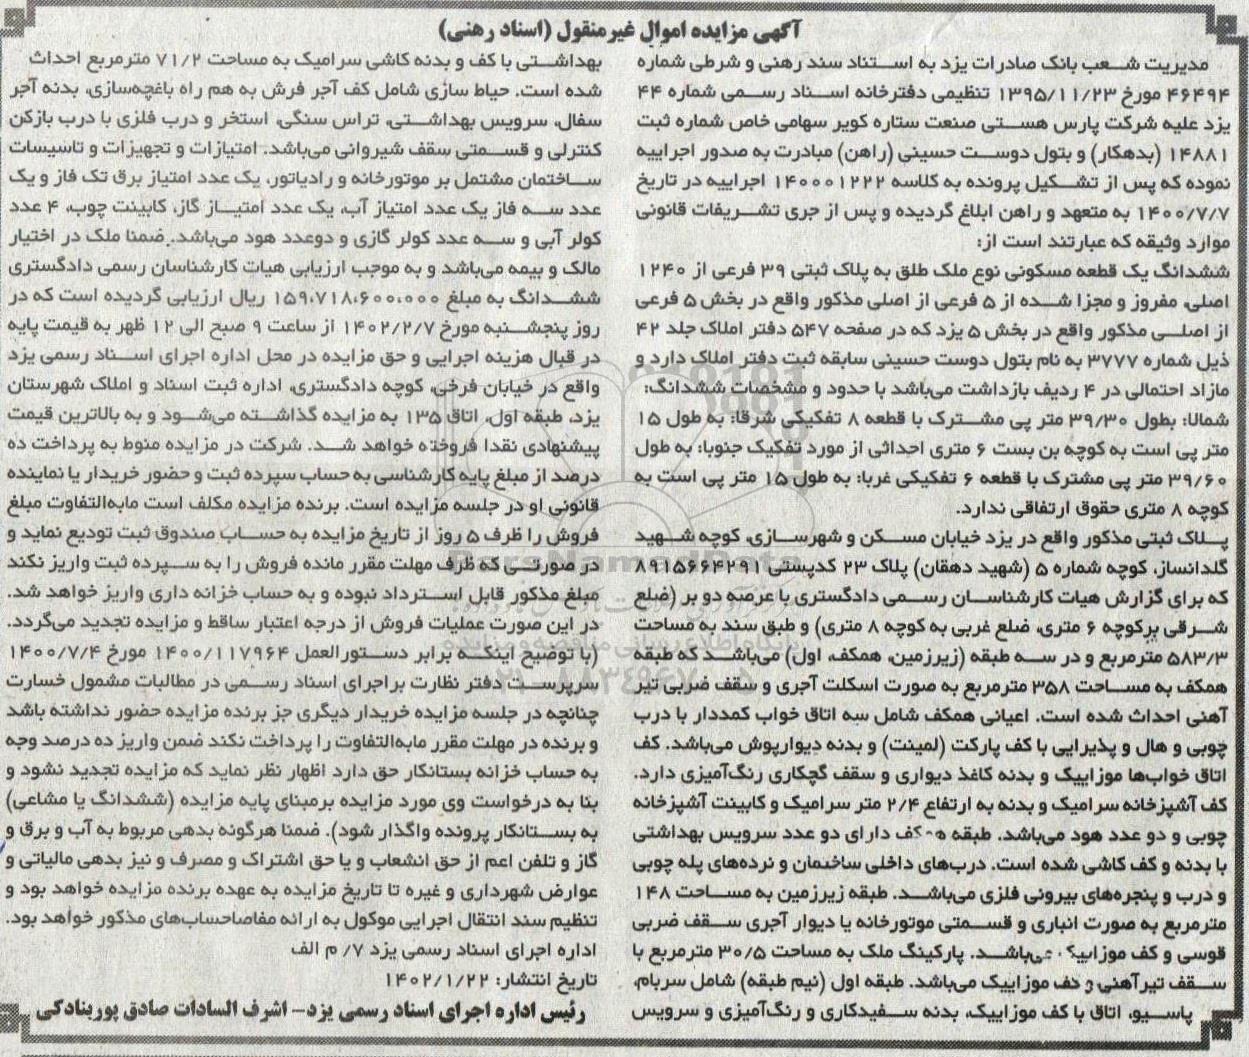 آگهی مزایده اموال غیرمنقول (اسناد رهنی)
مدیریت شعب بانک صادرات یزد به استناد سند رهنی و شرطی شماره
۴۶۴۹۴ مورخ ۱۳۹۵/۱۱/۲۳ تنظیمی دفترخانه اسناد رسمی شماره ۴۴
یزد علیه شرکت پارس هستی صنعت ستاره کویر سهامی خاص شماره ثبت
۱۴۸۸۱ (بدهکار) و بتول دوست حسینی (راهن) مبادرت به صدور اجراییه
نموده که پس از تشکیل پرونده به کلاسه ۱۴۰۰۰۱۲۲۲ اجراییه در تاریخ
۱۴۰۰/۷/۷ به متعهد و راهن ابلاغ گردیده و پس از جری تشریفات قانونی
موارد وثیقه که عبارتند است از:
ششدانگ یک قطعه مسکونی نوع ملک طلق به پلاک ثبتی ۳۹ فرعی از ۱۲۴۰
اصلی، مفروز و مجزا شده از ۵ فرعی از اصلی مذکور واقع در بخش ۵ فرعی
از اصلی مذکور واقع در بخش ۵ یزد که در صفحه ۵۴۷ دفتر املاک جلد ۴۲
ذیل شماره ۳۷۷۷ به نام بتول دوست حسینی سابقه ثبت دفتر املاک دارد و
مازاد احتمالی در ۴ ردیف بازداشت می‌باشد با حدود و مشخصات ششدانگ:
شمالا: بطول ۳۹/۳۰ متر پی مشترک با قطعه ۸ تفکیکی شرقا: به طول ۱۵
متر پی است به کوچه بن بست ۶ متری احداثی از مورد تفکیک جنوبا: به طول
۳۹/۶۰ متر پی مشترک با قطعه ۶ تفکیکی غربا: به طول ۱۵ متر پی است به
کوچه ۸ متری حقوق ارتفاقی ندارد.
پلاک ثبتی مذکور واقع در یزد خیابان مسکن و شهرسازی، کوچه شهید
گلدانساز، کوچه شماره ۵ (شهید دهقان) پلاک ۲۳ کدپستی ۸۹۱۵۶۶۴۲۹۱
که برای گزارش هیات کارشناسان رسمی دادگستری با عرصه دو بر (ضلع
شرقی برکوچه ۶ متری، ضلع غربی به کوچه ۸ متری) و طبق سند به مساحت
۵۸۳/۳ مترمربع و در سه طبقه (زیرزمین، همکف، اول) می‌باشد که طبقه
همکف به مساحت ۳۵۸ مترمربع به صورت اسکلت آجری و سقف ضربی تیر
آهنی احداث شده است. اعیانی همکف شامل سه اتاق خواب کمددار با درب
چوبی و هال و پذیرایی با کف پارکت (لمینت) و بدنه دیوارپوش می‌باشد. کف
اتاق خواب‌ها موزاییک و بدنه کاغذ دیواری و سقف گچکاری رنگ‌آمیزی دارد.
کف آشپزخانه سرامیک و بدنه به ارتفاع ۲/۴ متر سرامیک و کابینت آشپزخانه
چوبی و دو عدد هود می‌باشد. طبقه همکف دارای دو عدد سرویس بهداشتی
با بدنه و کف کاشی شده است. درب‌های داخلی ساختمان و نرده‌های پله چوبی
و درب و پنجره‌های بیرونی فلزی می‌باشد. طبقه زیرزمین به مساحت ۱۴۸
مترمربع به صورت انباری و قسمتی موتورخانه یا دیوار آجری سقف ضربی
قوسی و کف موزاییک می‌باشد. پارکینگ ملک به مساحت ۳۰/۵ مترمربع با
سقف تیرآهنی و کف موزاییک می‌باشد. طبقه اول (نیم طبقه) شامل سربام،
پاسیو، اتاق با کف موزاییک، بدنه سفیدکاری و رنگ‌آمیزی و سرویس
بهداشتی با کف و بدنه کاشی سرامیک به مساحت ۷۱/۲ مترمربع احداث
شده است. حیاط سازی شامل کف آجر فرش به هم راه باغچه‌سازی، بدنه آجر
سفال، سرویس بهداشتی، تراس سنگی، استخر و درب فلزی با درب بازکن
کنترلی و قسمتی سقف شیروانی می‌باشد. امتیازات و تجهیزات و تاسیسات
ساختمان مشتمل بر موتورخانه و رادیاتور، یک عدد امتیاز برق تک فاز و یک
عدد سه فاز یک عدد امتیاز آب، یک عدد امتیاز گاز، کابینت چوب، ۴ عدد
کولر آبی و سه عدد کولر گازی و دوعدد هود می‌باشد. ضمنا ملک در اختیار
مالک و بیمه می‌باشد و به موجب ارزیابی هیات کارشناسان رسمی دادگستری
ششدانگ به مبلغ ۱۵۹،۷۱۸،۶۰۰،۰۰۰ ریال ارزیابی گردیده است که در
روز پنجشنبه مورخ ۱۴۰۲/۲/۷ از ساعت ۹ صبح الی ۱۲ ظهر به قیمت پایه
در قبال هزینه اجرایی و حق مزایده در محل اداره اجرای اسناد رسمی یزد
واقع در خیابان فرخی، کوچه دادگستری، اداره ثبت اسناد و املاک شهرستان
یزد، طبقه اول، اتاق ۱۳۵ به مزایده گذاشته می‌شود و به بالاترین قیمت
پیشنهادی نقدا فروخته خواهد شد. شرکت در مزایده منوط به پرداخت ده
درصد از مبلغ پایه کارشناسی به حساب سپرده ثبت و حضور خریدار یا نماینده
قانونی او در جلسه مزایده است. برنده مزایده مکلف است مابه‌التفاوت مبلغ
فروش را ظرف ۵ روز از تاریخ مزایده به حساب صندوق ثبت تودیع نماید و
در صورتی که ظرف مهلت مقرر مانده فروش را به سپرده ثبت واریز نکند
مبلغ مذکور قابل استرداد نبوده و به حساب خزانه داری واریز خواهد شد.
در این صورت عملیات فروش از درجه اعتبار ساقط و مزایده تجدید می‌گردد.
(با توضیح اینکه برابر دستورالعمل ۱۴۰۰/۱۱۷۹۶۴ مورخ ۱۴۰۰/۷/۴
سرپرست دفتر نظارت براجرای اسناد رسمی در مطالبات مشمول خسارت
چنانچه در جلسه مزایده خریدار دیگری جز برنده مزایده حضور نداشته باشد
و برنده در مهلت مقرر مابه‌التفاوت را پرداخت نکند ضمن واریز ده درصد وجه
به حساب خزانه بستانکار حق دارد اظهار نظر نماید که مزایده تجدید نشود و
بنا به درخواست وی مورد مزایده برمبنای پایه مزایده (ششدانگ یا مشاعی)
به بستانکار پرونده واگذار شود). ضمنا هرگونه بدهی مربوط به آب و برق و
گاز و تلفن اعم از حق انشعاب و یا حق اشتراک و مصرف و نیز بدهی مالیاتی و
عوارض شهرداری و غیره تا تاریخ مزایده به عهده برنده مزایده خواهد بود و
تنظیم سند انتقال اجرایی موکول به ارائه مفاصاحساب‌های مذکور خواهد بود.
اداره اجرای اسناد رسمی یزد ۷/ م الف
تاریخ انتشار: ۱۴۰۲/۱/۲۲
رئیس اداره اجرای اسناد رسمی یزد- اشرف السادات صادق پوربنادکی
ParsNamadData